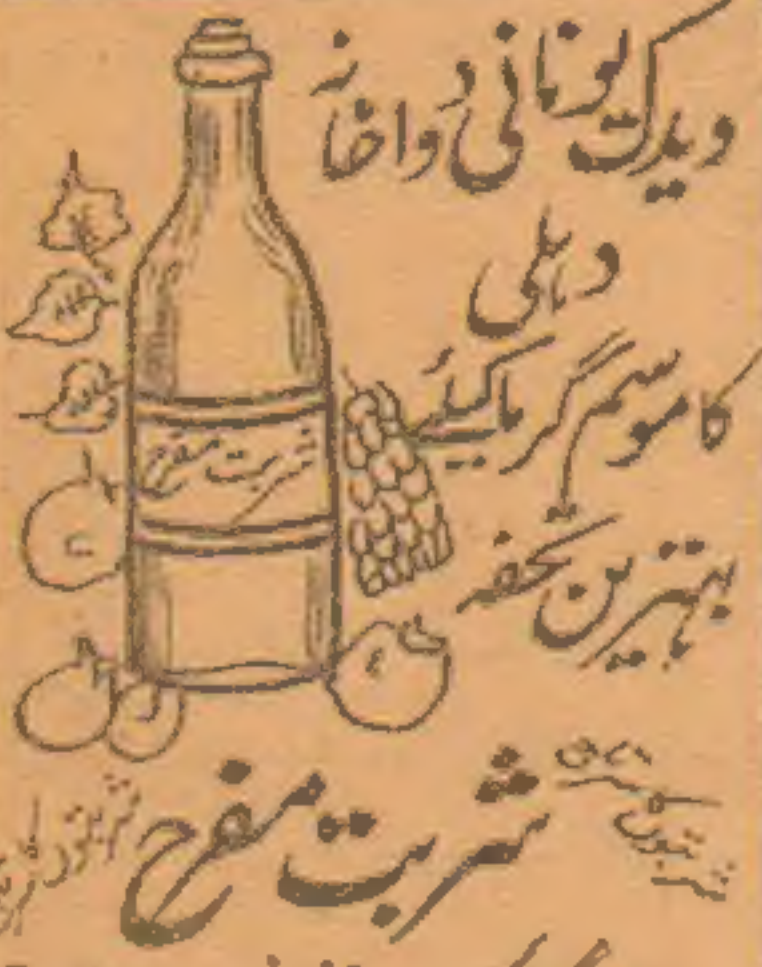 ویدک یونانی دواخانہ
دہلی
کا موسم گرما کیلئے
بہترین تحفہ
شربت مفرح
شربت مفرح